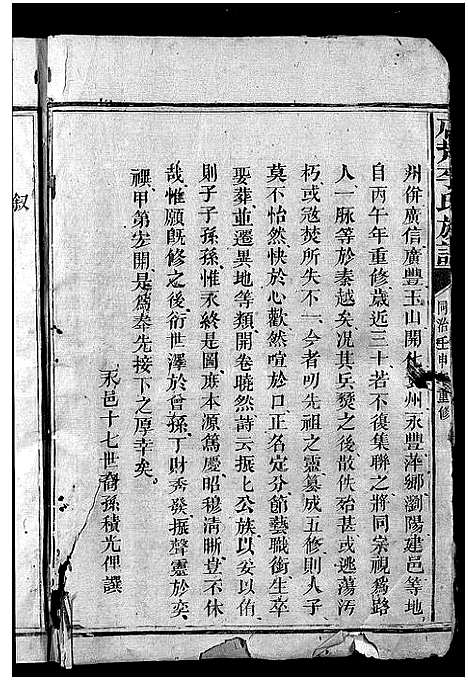 李氏族譜
同治壬申
重修
州併廣信廣豐玉山開化州永豐萍鄉瀏陽建邑等地
自丙午年重修歲近三十若不復集聯之將同宗視爲路
人一脉等於秦越矣况其兵燹之後散佚殆甚或逃蕩污
朽或寇焚所失不一今者叨先祖之靈纂成五修則人子
莫不怡然快於心歡然喧於口正名定分節藝職銜生卒
娶葬並遷異地等類開卷曉然詩云振匕公族以妥以侑
則子子孫孫惟永終是圖庻本源篤慶昭穆清晰豈不休
哉惟願既修之後衍世澤於曾孫丁財秀發振聲靈於奕
禩甲第宏開是爲奉先接下之厚幸矣
永邑十七世裔孫積光俚譔
叙